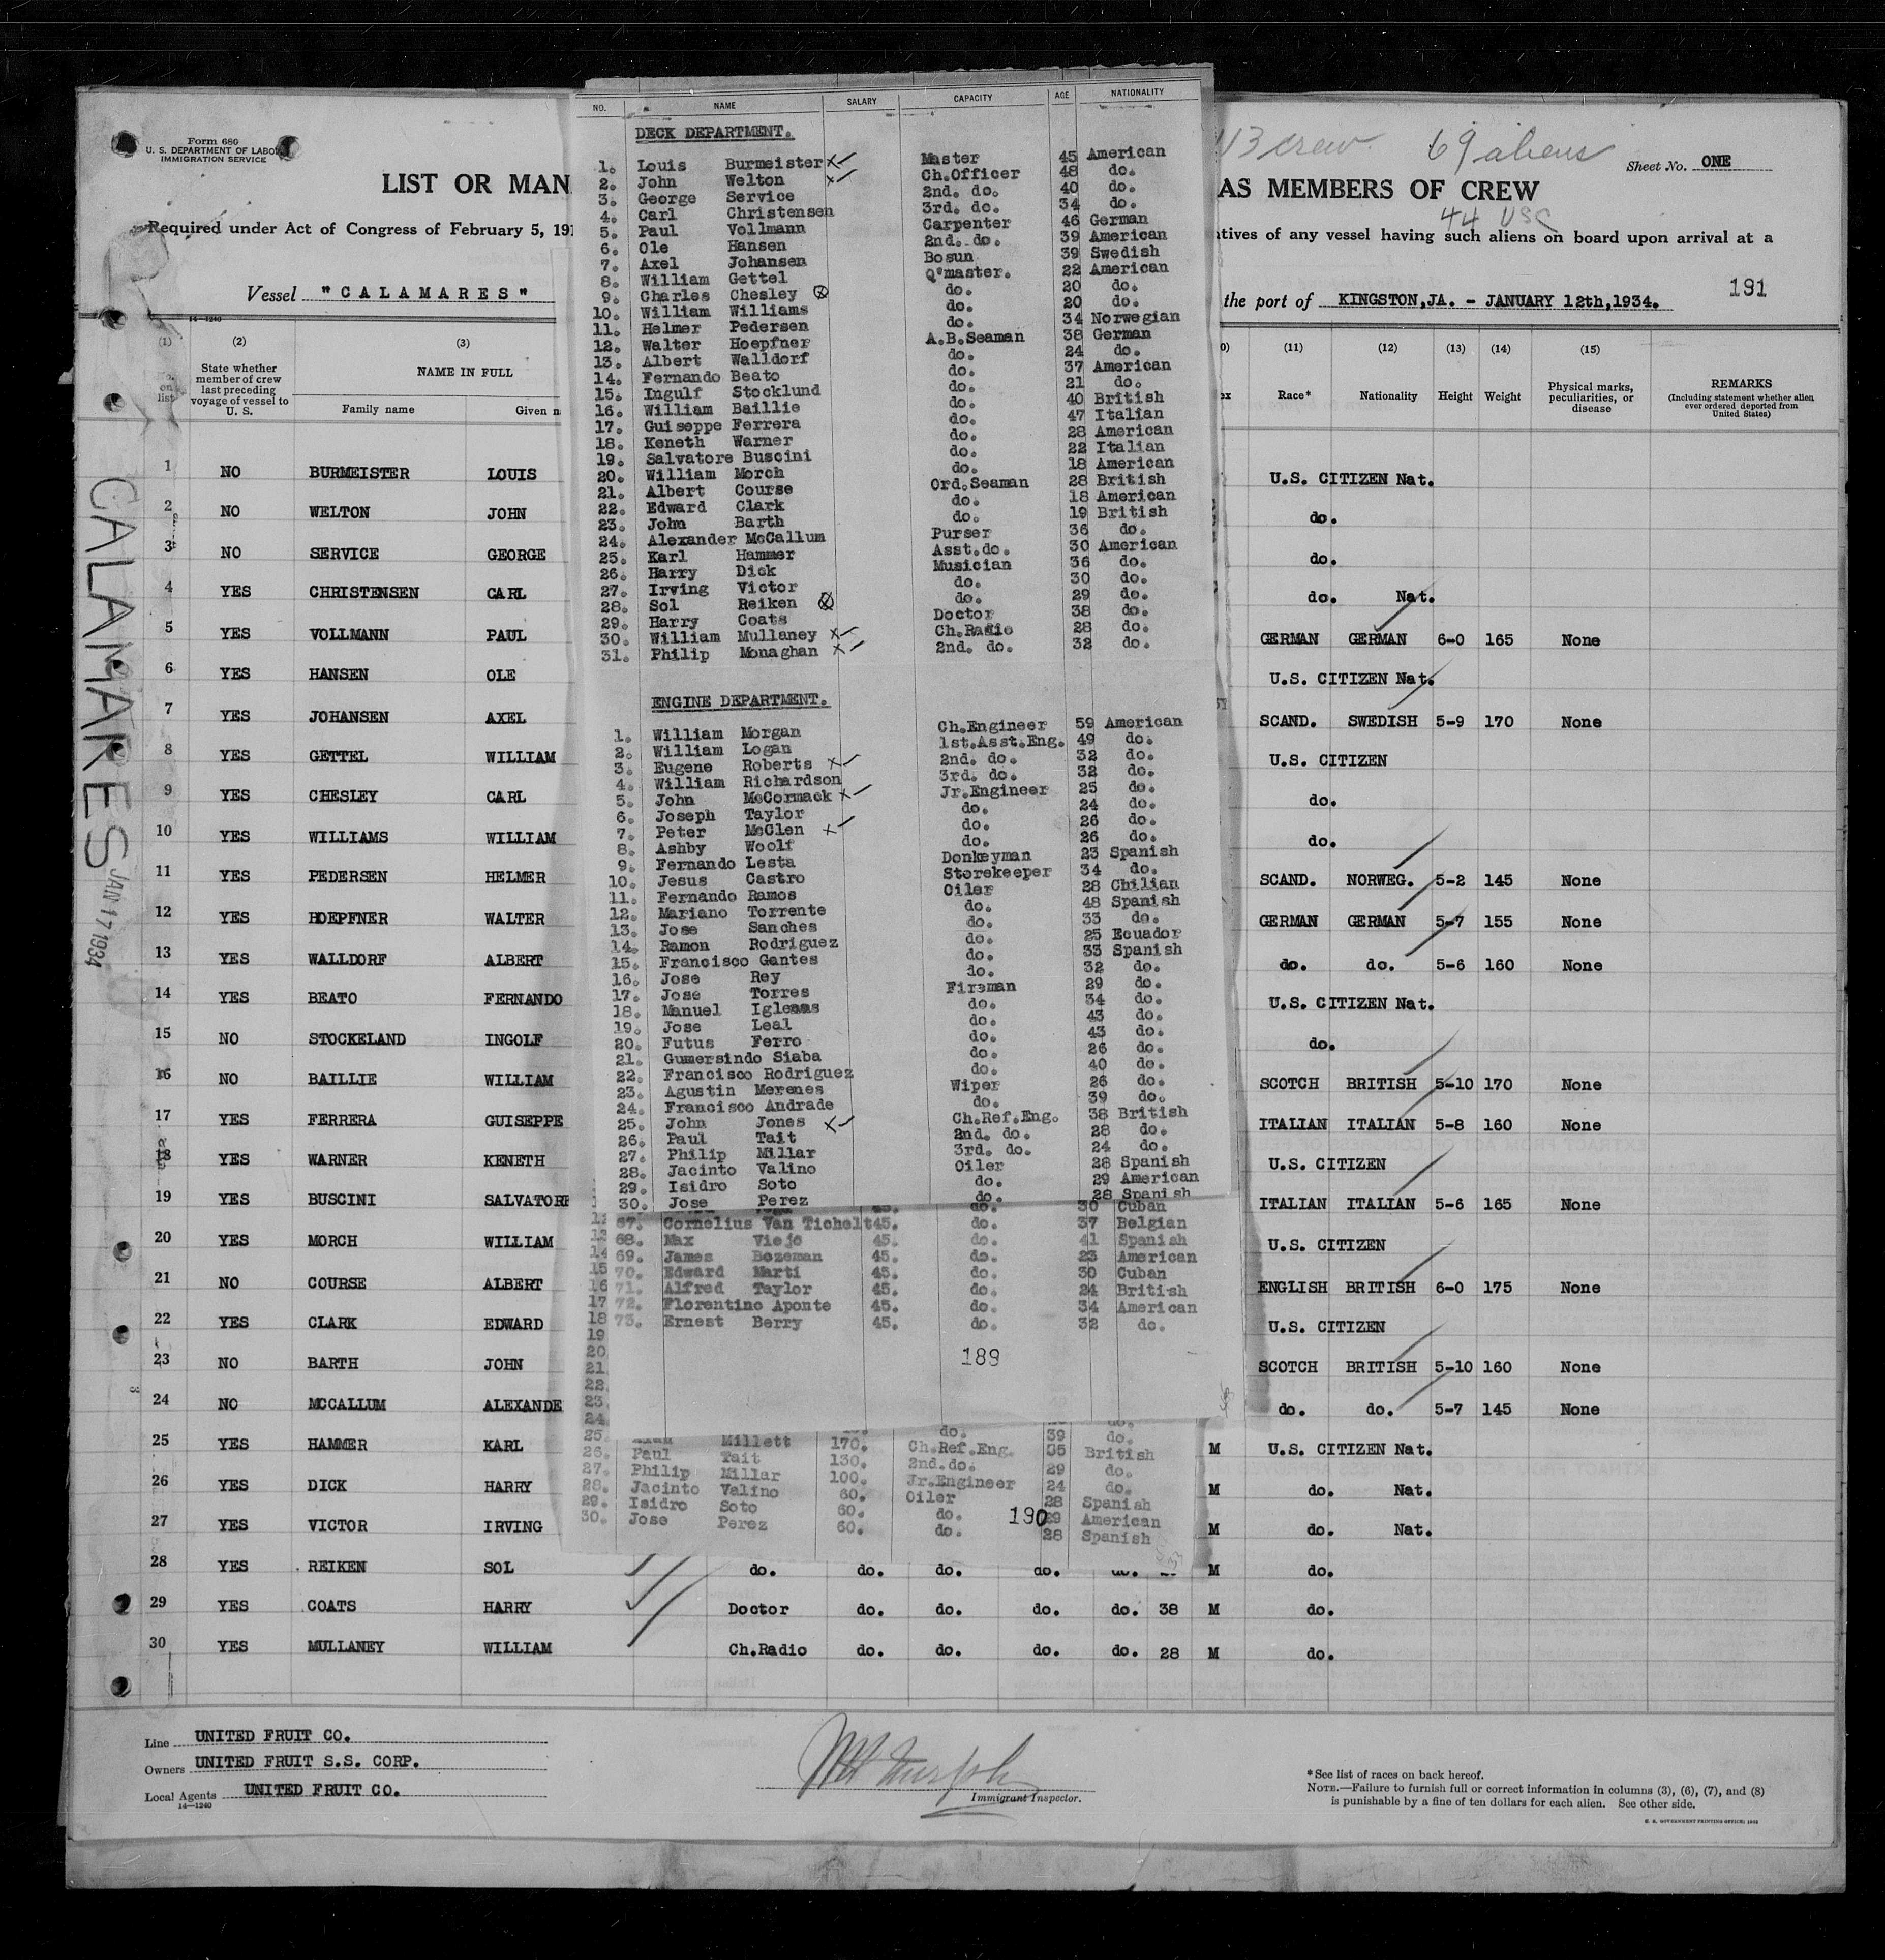 Form 680
U. S. DEPARTMENT OF LABOR
IMMIGRATION SERVICE
LIST OR MAN
AS MEMBERS OF CREW
Required under Act of Congress of February 5, 191
tives of any vessel having such aliens on board upon arrival at a
Vessel "CALAMARES"
the port of KINGSTON,JA. - JANUARY 12th,1934.
191
13 crew 69 aliens
44 USC
Sheet No. ONE
NO. NAME SALARY CAPACITY AGE NATIONALITY
DECK DEPARTMENT.
1. Louis Burmeister Master 45 American
2. John Welton Ch.Officer 48 do.
3. George Service 2nd. do. 40 do.
4. Carl Christensen 3rd. do. 34 do.
5. Paul Vollmann Carpenter 46 German
6. Ole Hansen 2nd. do. 39 American
7. Axel Johansen Bosun 39 Swedish
8. William Gettel Q'master. 22 American
9. Charles Chesley do. 20 do.
10. William Williams do. 20 do.
11. Helmer Pedersen do. 34 Norwegian
12. Walter Hoepfner A.B.Seaman 38 German
13. Albert Walldorf do. 24 do.
14. Fernando Beato do. 37 American
15. Ingulf Stocklund do. 21 do.
16. William Baillie do. 40 British
17. Guiseppe Ferrera do. 47 Italian
18. Keneth Warner do. 28 American
19. Salvatore Buscini do. 22 Italian
20. William Morch do. 18 American
21. Albert Course Ord.Seaman 28 British
22. Edward Clark do. 18 American
23. John Barth do. 19 British
24. Alexander McCallum Purser 36 do.
25. Karl Hammer Asst.do. 30 American
26. Harry Dick Musician 36 do.
27. Irving Victor do. 30 do.
28. Sol Reiken do. 29 do.
29. Harry Coats Doctor 38 do.
30. William Mullaney Ch.Radio 28 do.
31. Philip Monaghan 2nd. do. 32 do.
ENGINE DEPARTMENT.
1. William Morgan Ch.Engineer 59 American
2. William Logan 1st.Asst.Eng. 49 do.
3. Eugene Roberts 2nd. do. 32 do.
4. William Richardson 3rd. do. 32 do.
5. John McCormack Jr.Engineer 25 do.
6. Joseph Taylor do. 24 do.
7. Peter McClen do. 26 do.
8. Ashby Woolf do. 26 do.
9. Fernando Lesta Donkeyman 23 Spanish
10. Jesus Castro Storekeeper 34 do.
11. Fernando Ramos Oiler 28 Chilian
12. Mariano Torrente do. 48 Spanish
13. Jose Sanches do. 33 do.
14. Ramon Rodriguez do. 25 Ecuador
15. Francisco Gantes do. 33 Spanish
16. Jose Rey do. 32 do.
17. Jose Torres Fireman 29 do.
18. Manuel do. 34 do.
19. Jose Leal do. 43 do.
20. Futus Ferro do. 43 do.
21. Gumersindo Siaba do. 26 do.
22. Francisco Rodriguez do. 40 do.
23. Agustin Merenes Wiper 26 do.
24. Francisco Andrade do. 39 do.
25. John Jones Ch.Ref.Eng. 38 British
26. Paul Tait 2nd. do. 28 do.
27. Philip Millar 3rd. do. 24 do.
28. Jacinto Valino Oiler 28 Spanish
29. Isidro Soto do. 29 American
30. Jose Perez do. 28 Spanish
45. do. 30 Cuban
67. Cornelius Van Tichelt 45. do. 37 Belgian
68. Max Viejo 45. do. 41 Spanish
69. James Bozeman 45. do. 23 American
70. Edward Marti 45. do. 30 Cuban
71. Alfred Taylor 45. do. 24 British
72. Florentino Aponte 45. do. 34 American
73. Ernest Berry 45. do. 32 do.
15
16
17
18
19
20
21
22.
23.
24.
189
25. Millett 170. do. 39 do.
26. Paul Tait 130. Ch.Ref.Eng. 35 British
27. Philip Millar 100. 2nd.do. 29 do.
28. Jacinto Valino 60. Jr.Engineer 24 do.
29. Isidro Soto 60. Oiler 28 Spanish
30. Jose Perez 60. do. 29 American
do. 28 Spanish
190
14—1240
(1) (2) (3) (11) (12) (13) (14) (15)
No. on list
State whether member of crew last preceding voyage of vessel to U. S.
NAME IN FULL
Family name Given n
Race* Nationality Height Weight Physical marks, peculiarities, or disease
REMARKS
(Including statement whether alien ever ordered deported from United States)
1 NO BURMEISTER LOUIS U.S. CITIZEN Nat.
2 NO WELTON JOHN do.
3 NO SERVICE GEORGE do.
4 YES CHRISTENSEN CARL do. Nat.
5 YES VOLLMANN PAUL GERMAN GERMAN 6-0 165 None
6 YES HANSEN OLE U.S. CITIZEN Nat.
7 YES JOHANSEN AXEL SCAND. SWEDISH 5-9 170 None
8 YES GETTEL WILLIAM U.S. CITIZEN
9 YES CHESLEY CARL do.
10 YES WILLIAMS WILLIAM do.
11 YES PEDERSEN HELMER SCAND. NORWEG. 5-2 145 None
12 YES HOEPFNER WALTER GERMAN GERMAN 5-7 155 None
13 YES WALLDORF ALBERT do. do. 5-6 160 None
14 YES BEATO FERNANDO U.S. CITIZEN Nat.
15 NO STOCKELAND INGOLF do.
16 NO BAILLIE WILLIAM SCOTCH BRITISH 5-10 170 None
17 YES FERRERA GUISEPPE ITALIAN ITALIAN 5-8 160 None
18 YES WARNER KENETH U.S. CITIZEN
19 YES BUSCINI SALVATORE ITALIAN ITALIAN 5-6 165 None
20 YES MORCH WILLIAM U.S. CITIZEN
21 NO COURSE ALBERT ENGLISH BRITISH 6-0 175 None
22 YES CLARK EDWARD U.S. CITIZEN
23 NO BARTH JOHN SCOTCH BRITISH 5-10 160 None
24 NO MCCALLUM ALEXANDE do. do. 5-7 145 None
25 YES HAMMER KARL M U.S. CITIZEN Nat.
26 YES DICK HARRY M do. Nat.
27 YES VICTOR IRVING M do. Nat.
28 YES REIKEN SOL do. do. do. do. M do.
29 YES COATS HARRY Doctor do. do. do. do. 38 M do.
30 YES MULLANEY WILLIAM Ch.Radio do. do. do. do. 28 M do.
CALAMARES
JAN 17 1934
Line UNITED FRUIT CO.
Owners UNITED FRUIT S.S. CORP.
Local Agents UNITED FRUIT CO.
14—1240
Immigrant Inspector.
*See list of races on back hereof.
NOTE.—Failure to furnish full or correct information in columns (3), (6), (7), and (8)
is punishable by a fine of ten dollars for each alien. See other side.
U. S. GOVERNMENT PRINTING OFFICE: 1932